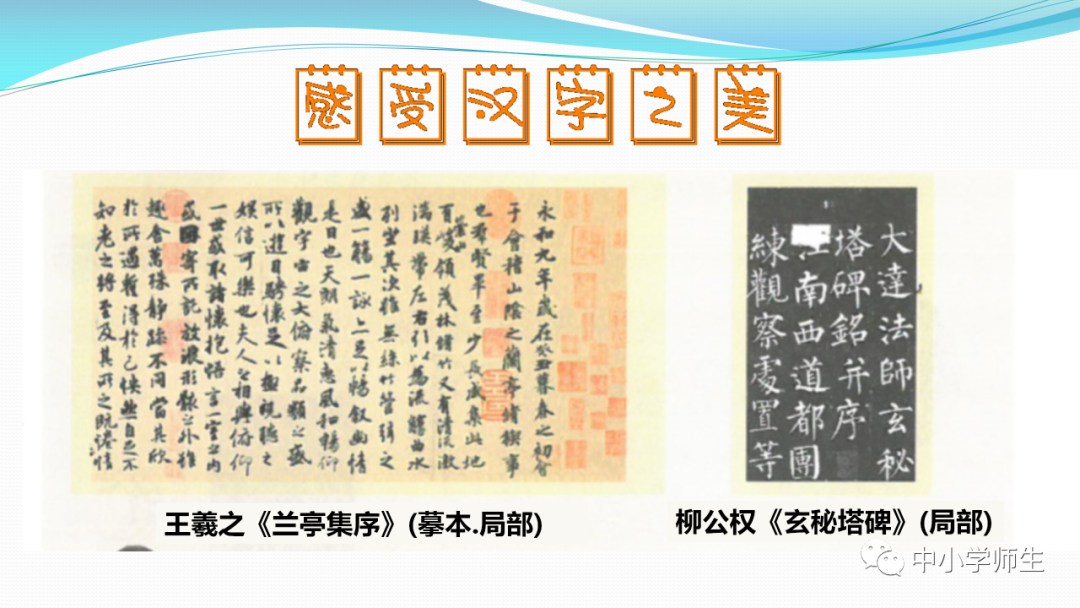 感受汉字之美
永和九年歲在癸丑暮春之初會
于會稽山陰之蘭亭脩禊事
也羣賢畢至少長咸集此地
有崇山峻領茂林脩竹又有清流激
湍暎帶左右引以為流觴曲水
列坐其次雖無絲竹管弦之
盛一觴一詠亦足以暢敘幽情
是日也天朗氣清惠風和暢仰
觀宇宙之大俯察品類之盛
所以遊目騁懷足以極視聽之
娛信可樂也夫人之相與俯仰
一世或取諸懷抱悟言一室之內
或因寄所託放浪形骸之外雖
趣舍萬殊靜躁不同當其欣
於所遇暫得於己快然自足不
知老之將至及其所之既惓情
大達法師玄秘
塔碑銘并序
江南西道都團
練觀察處置等
王羲之《兰亭集序》(摹本.局部)
柳公权《玄秘塔碑》(局部)
中小学师生